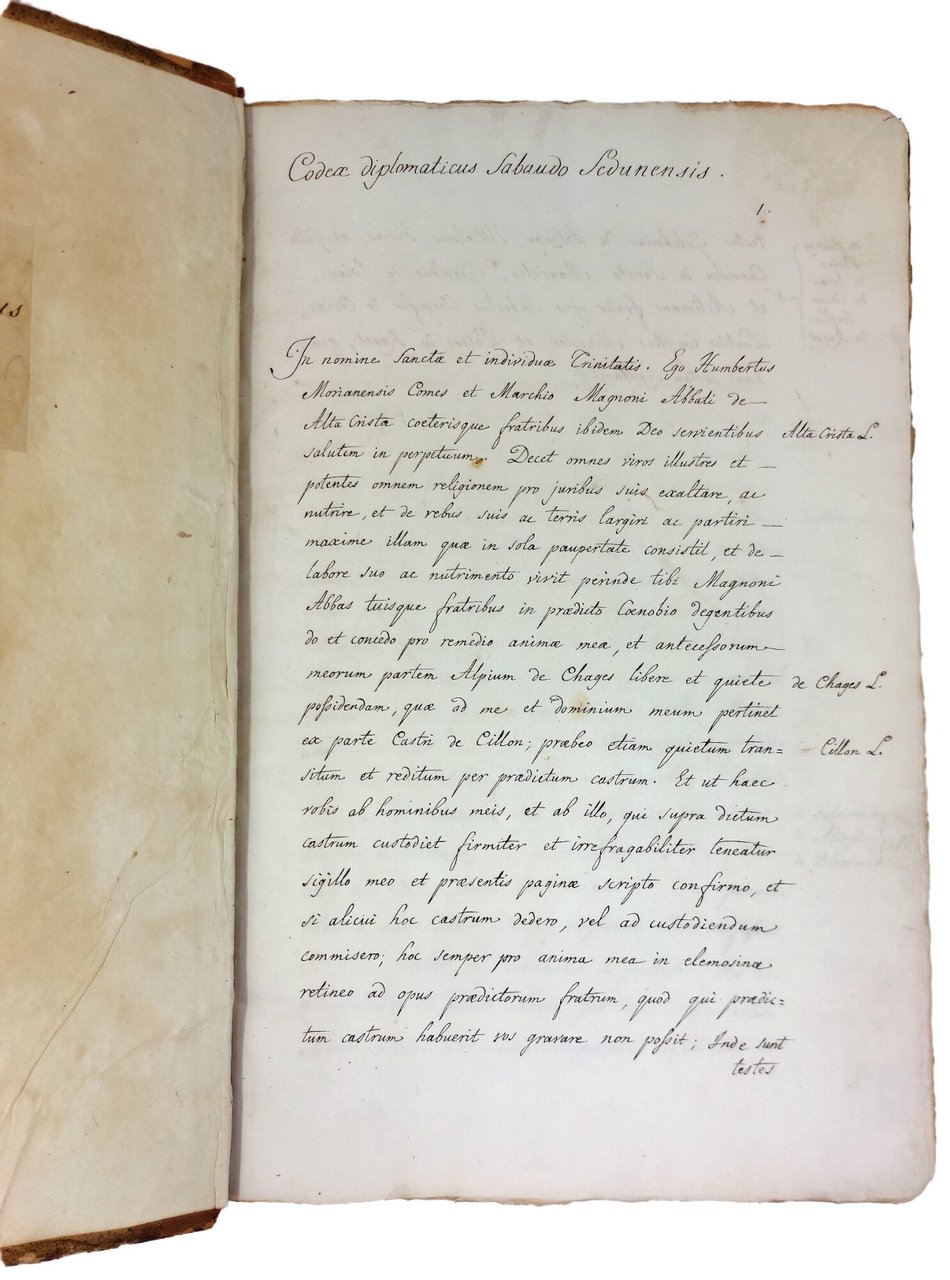 us
Codex diplomaticus Sabaudo Sedunensis.
1.
In nomine Sanctæ et individuæ Trinitatis. Ego Humbertus
Morianensis Comes et Marchio Magnoni Abbati de
Alta Crista coeterisque fratribus ibidem Deo servientibus Alta Crista L.
salutem in perpetuum. Decet omnes viros illustres et
potentes omnem religionem pro juribus suis exaltare, ac
nutrire, et de rebus suis ac terris largiri ac partiri
maxime illam quæ in sola paupertate consistit, et de
labore suo ac nutrimento vivit perinde tibi Magnoni
Abbas tuisque fratribus in prædicto Coenobio degentibus
do et concedo pro remedio animæ meæ, et antecessorum
meorum partem Alpium de Chages libere et quiete de Chages L.
possidendam, quæ ad me et dominium meum pertinet
ex parte Castri de Cillon; præbeo etiam quietum tran= Cillon L.
situm et reditum per prædictum castrum. Et ut haec
vobis ab hominibus meis, et ab illo, qui supra dictum
castrum custodiet firmiter et irrefragabiliter teneatur
sigillo meo et præsentis paginæ scripto confirmo, et
si alicui hoc castrum dedero, vel ad custodiendum
commisero; hoc semper pro anima mea in elemosina
retineo ad opus prædictorum fratrum, quod qui prædic=
tum castrum habuerit vos gravare non possit; Inde sunt
testes